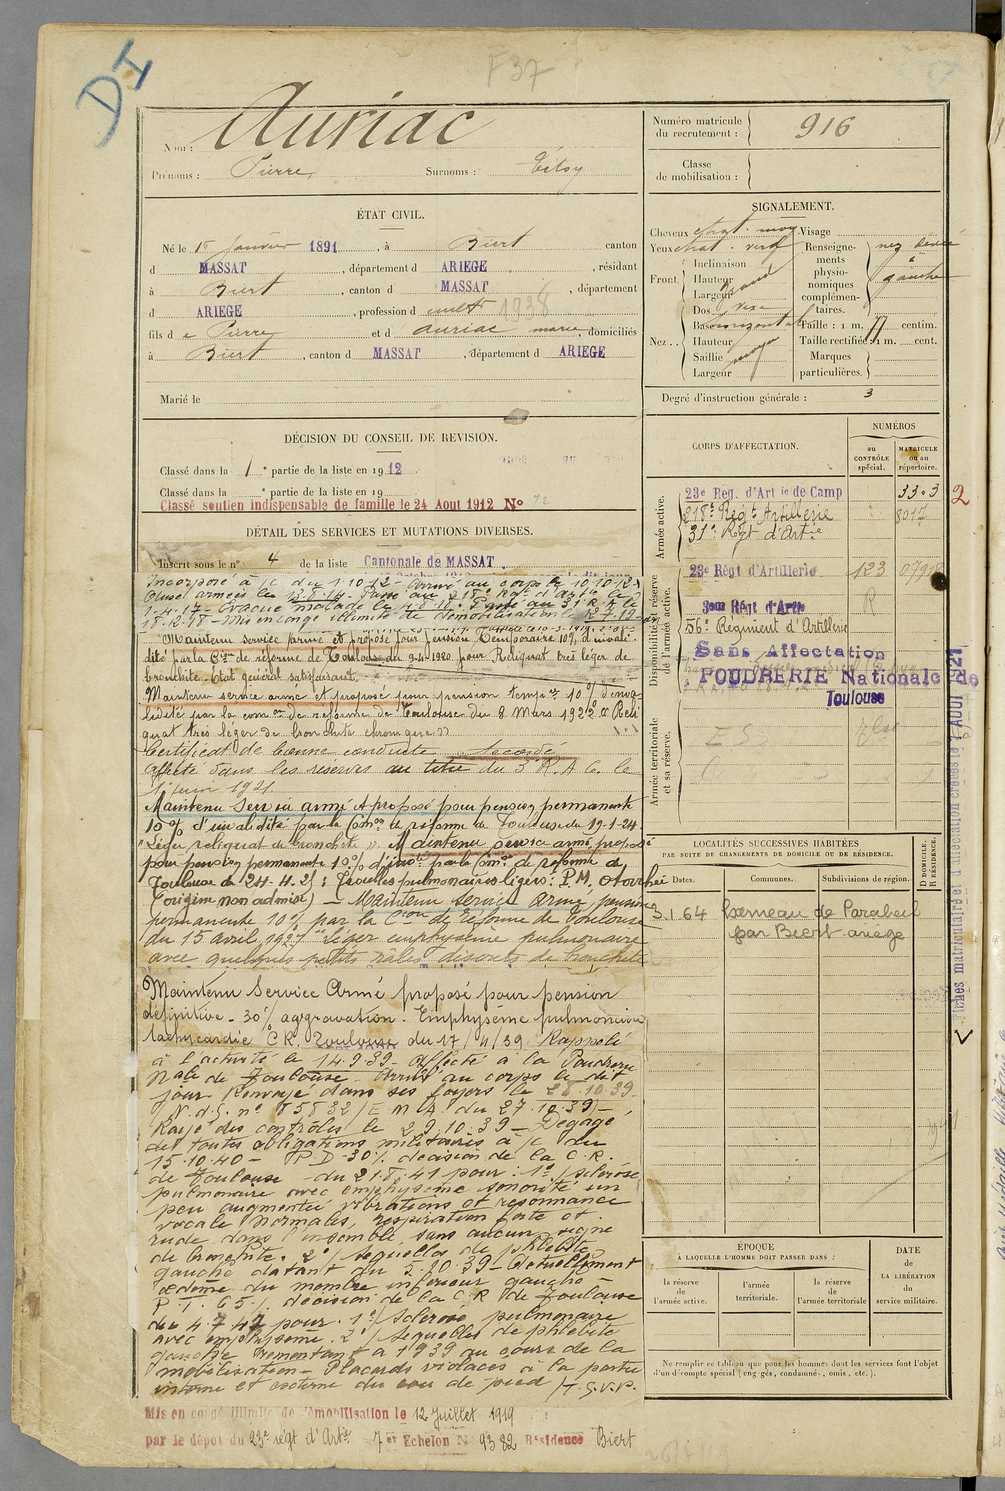 DI
F37
Nom : Auriac
Prénoms : Pierre, Surnoms :
ÉTAT CIVIL.
Né le 15 Janvier 1891, à Biert canton
d MASSAT, département d ARIEGE, résidant
à Biert, canton d MASSAT, département
d ARIEGE, profession d cult 1938
fils de Pierre et d auriac marie, domiciliés
à Biert, canton d MASSAT, département d ARIEGE
Marié le
DÉCISION DU CONSEIL DE REVISION.
Classé dans la 1 e partie de la liste en 1912.
Classé dans la e partie de la liste en 19
Classé soutien indispensable de famille le 24 Aout 1912 No 72
DÉTAIL DES SERVICES ET MUTATIONS DIVERSES.
Inscrit sous le n° 4 de la liste Cantonale de MASSAT
Incorporé à /c du 1-10-12 - Arrivé au corps le 10.10.12.
Passé au 218e Rgt d'Art le
1-4-17 - Evacué malade le Passé au 31e R.A. le
18-12-18 - Mis en congé illimité de démobilisation le
Maintenu service armé et proposé pour pension temporaire 10% d'invali-
dité par la Con de réforme de Toulouse du 9-4-1920 pour Reliquat très léger de
bronchite - Etat général satisfaisant.
Maintenu service armé et proposé pour pension tempre 10% d'inva
lidité par la comon de réforme de Toulouse du 8 Mars 1922 "Reli
quat très léger de bronchite chronique"
Certificat de bonne conduite Accordé
Affecté dans les réserves au titre du 3e R.A.C. le
1er juin 1921.
Maintenu Service armé et proposé pour pension permanente
10% d'invalidité par la Comon de réforme de Toulouse du 19-1-24
"Léger reliquat de bronchite". Maintenu service armé proposé
pour pension permanente 10% d'invté par la Comon de réforme de
Toulouse du 24-4-25 : Troubles pulmonaires légers : P.M. Otorrhée
(origine non admise) - Maintenu service armé pension
permanente 10% par la Con de réforme de Toulouse
du 15 avril 1927 "léger emphysème pulmonaire
avec quelques petits râles discrets de bronchite
Maintenu Service Armé proposé pour pension
définitive - 30% aggravation. Emphysème pulmonaire
tachycardie C.R. Toulouse du 17/4/39 Rappelé
à l'activité le 14.9.39 - Affecté à la Poudrerie
Nale de Toulouse - Arrivé au corps le dit
jour Renvoyé dans ses foyers le 28.10.39
N.d.S. n° 85832/E.M.A. du 27.10.39) -
Rayé des contrôles le 29.10.39 - Dégagé
de toutes obligations militaires à /c du
15.10.40 - P.D. 30% décision de la C.R.
de Toulouse du 21.8.41 pour : 1°/ sclérose
pulmonaire avec emphysème sonorité un
peu augmentée vibrations et resonnance
vocale normales, respiration forte et
rude dans l'ensemble sans aucun signe
de bronchite. 2°/ séquelles de phlébite
gauche datant du 2.10.39 - Actuellement
œdème du membre inférieur gauche -
P.T. 65% décision de la C.R. de Toulouse
du 4.7.47 pour : 1°/ Sclérose pulmonaire
avec emphysème. 2°/ Séquelles de phlébite
gauche remontant à 1939 au cours de la
mobilisation - Placards violacés à la partie
interne et externe du cou de pied /T.S.V.P.
Mis en congé illimité de démobilisation le 12 Juillet 1919
par le dépôt du 23e régt d'Artie 7 er Echelon No 9382 Résidence Biert
Numéro matricule du recrutement : 916
Classe de mobilisation :
SIGNALEMENT.
Cheveux chat. moy
Yeux chat. verd
Front Inclinaison
Hauteur
Largeur grand
Nez Dos vexe
Base horizontale
Hauteur
Saillie
Largeur moyen
Visage
Renseignements physionomiques complémentaires. nez dévié à gauche
Taille : 1 m. 77 centim.
Taille rectifiée : 1 m. cent.
Marques particulières.
Degré d'instruction générale : 3
CORPS D'AFFECTATION.
NUMÉROS
au CONTRÔLE spécial.
MATRICULE ou au répertoire.
Armée active.
23e Reg. d'Artie de Camp
218e Régt Artillerie 8017
31e Rgt d'Artie
Disponibilité et réserve de l'armée active.
23e Régt d'Artillerie 123
3eme Régt d'Artie R
56e Régiment d'Artillerie
Sans Affectation
POUDRERIE Nationale de
Toulouse
Armée territoriale et sa réserve.
2
Fiches matriculaire et d'affectation créées le AOUT 1921
LOCALITÉS SUCCESSIVES HABITÉES
PAR SUITE DE CHANGEMENTS DE DOMICILE OU DE RÉSIDENCE.
Dates.
Communes.
Subdivisions de région.
D DOMICILE. R RÉSIDENCE.
3.1.64 hameau de Parabeil
par Biert ariège
ÉPOQUE
À LAQUELLE L'HOMME DOIT PASSER DANS :
la réserve de l'armée active.
l'armée territoriale.
la réserve de l'armée territoriale
DATE de LA LIBÉRATION du service militaire.
Ne remplir ce tableau que pour les hommes dont les services font l'objet
d'un décompte spécial (engagés, condamnés, omis, etc.).